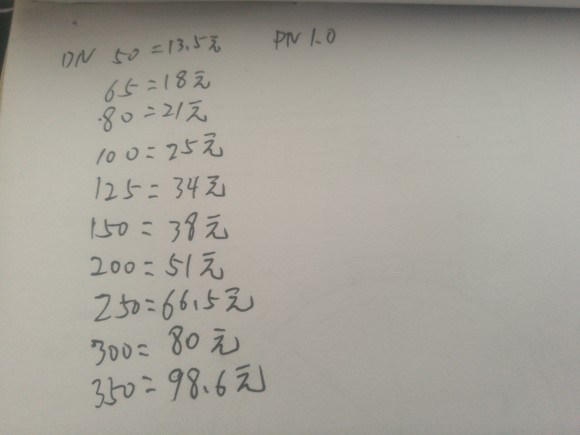 DN 50=13.5元 PN 1.0
65=18元
80=21元
100=25元
125=34元
150=38元
200=51元
250=66.5元
300=80元
350=98.6元